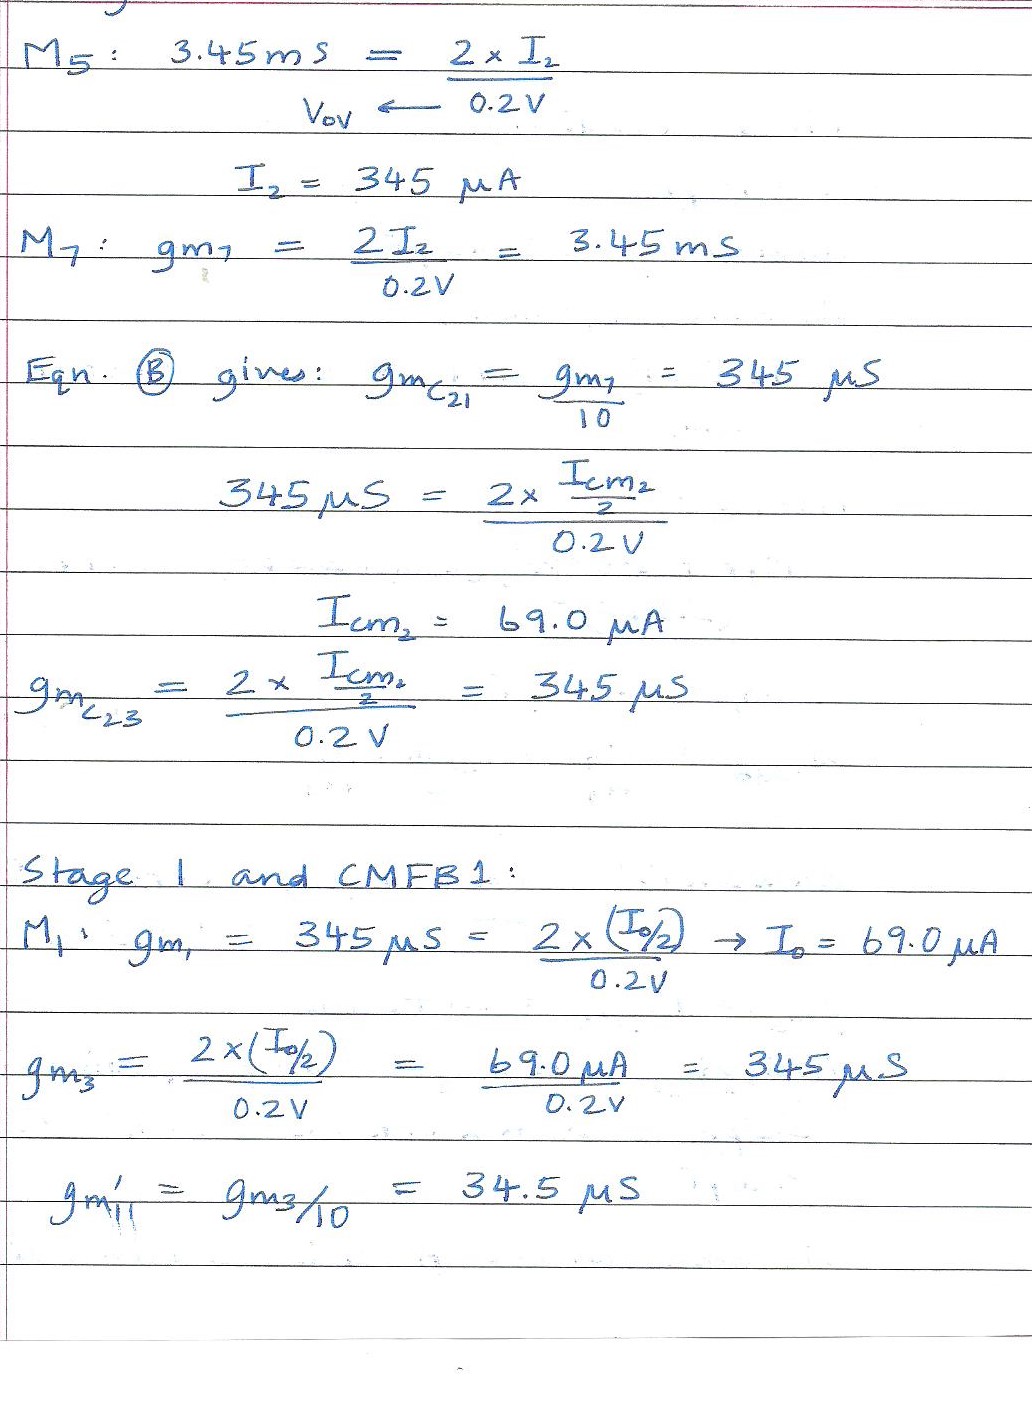 M5: 3.45mS = 2 x I2 / 0.2V
Vov ←
I2 = 345 μA
M7: gm7 = 2I2 / 0.2V = 3.45mS
Eqn. Ⓑ gives: gmC21 = gm7 / 10 = 345 μS
345μS = 2x Icm2/2 / 0.2V
Icm2 = 69.0 μA
gmC23 = 2 x Icm2/2 / 0.2V = 345 μS
Stage 1 and CMFB1:
M1: gm1 = 345μS = 2x(I0/2) / 0.2V → I0 = 69.0μA
gm3 = 2x(I0/2) / 0.2V = 69.0μA / 0.2V = 345μS
gm'11 = gm3/10 = 34.5 μS